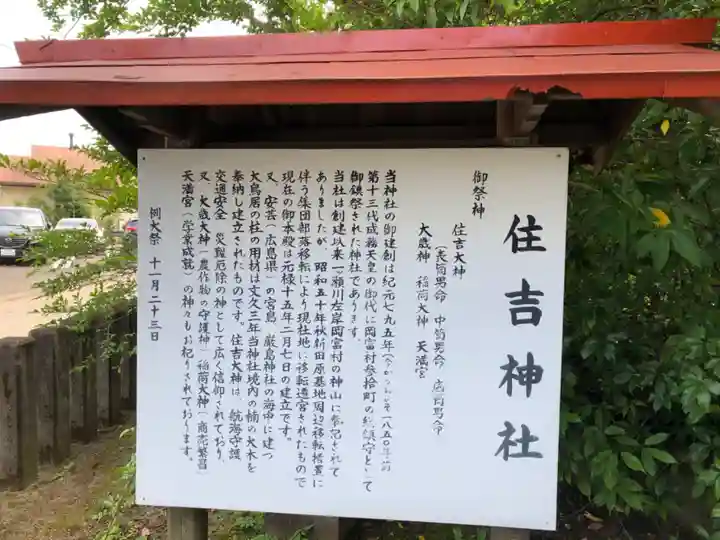 住吉神社
御祭神
住吉大神
(表筒男命 中筒男命 底筒男命
大歳神 稲荷大神 天満宮
当神社の御建創は紀元七九五年(今から 一八五〇年前
第十三代成務天皇の御代に岡富村参拾町の総鎮守として
御鎮祭された神社であります。
当社は創建以来一瀬川左岸岡富村の神山に奉祀されて
ありましたが 昭和五十年秋新田原基地周辺移転措置に
伴う集団部落移転により現社地に移転遷宮されたもので
現在の御本殿は元禄十五年二月七日の建立です。
又、安芸(広島県)の宮島 厳島神社の海中に建つ
大鳥居の柱の用材は文久三年当神社境内の楠の大木を
奉納し建立されたものです。住吉大神は、航海守護
交通安全 災難厄除の神として広く信仰されており、
又、大歳大神(農作物の守護神)稲荷大神(商売繁昌)
天満宮(学業成就)の神々もお祀りされております。
例大祭 十一月二十三日